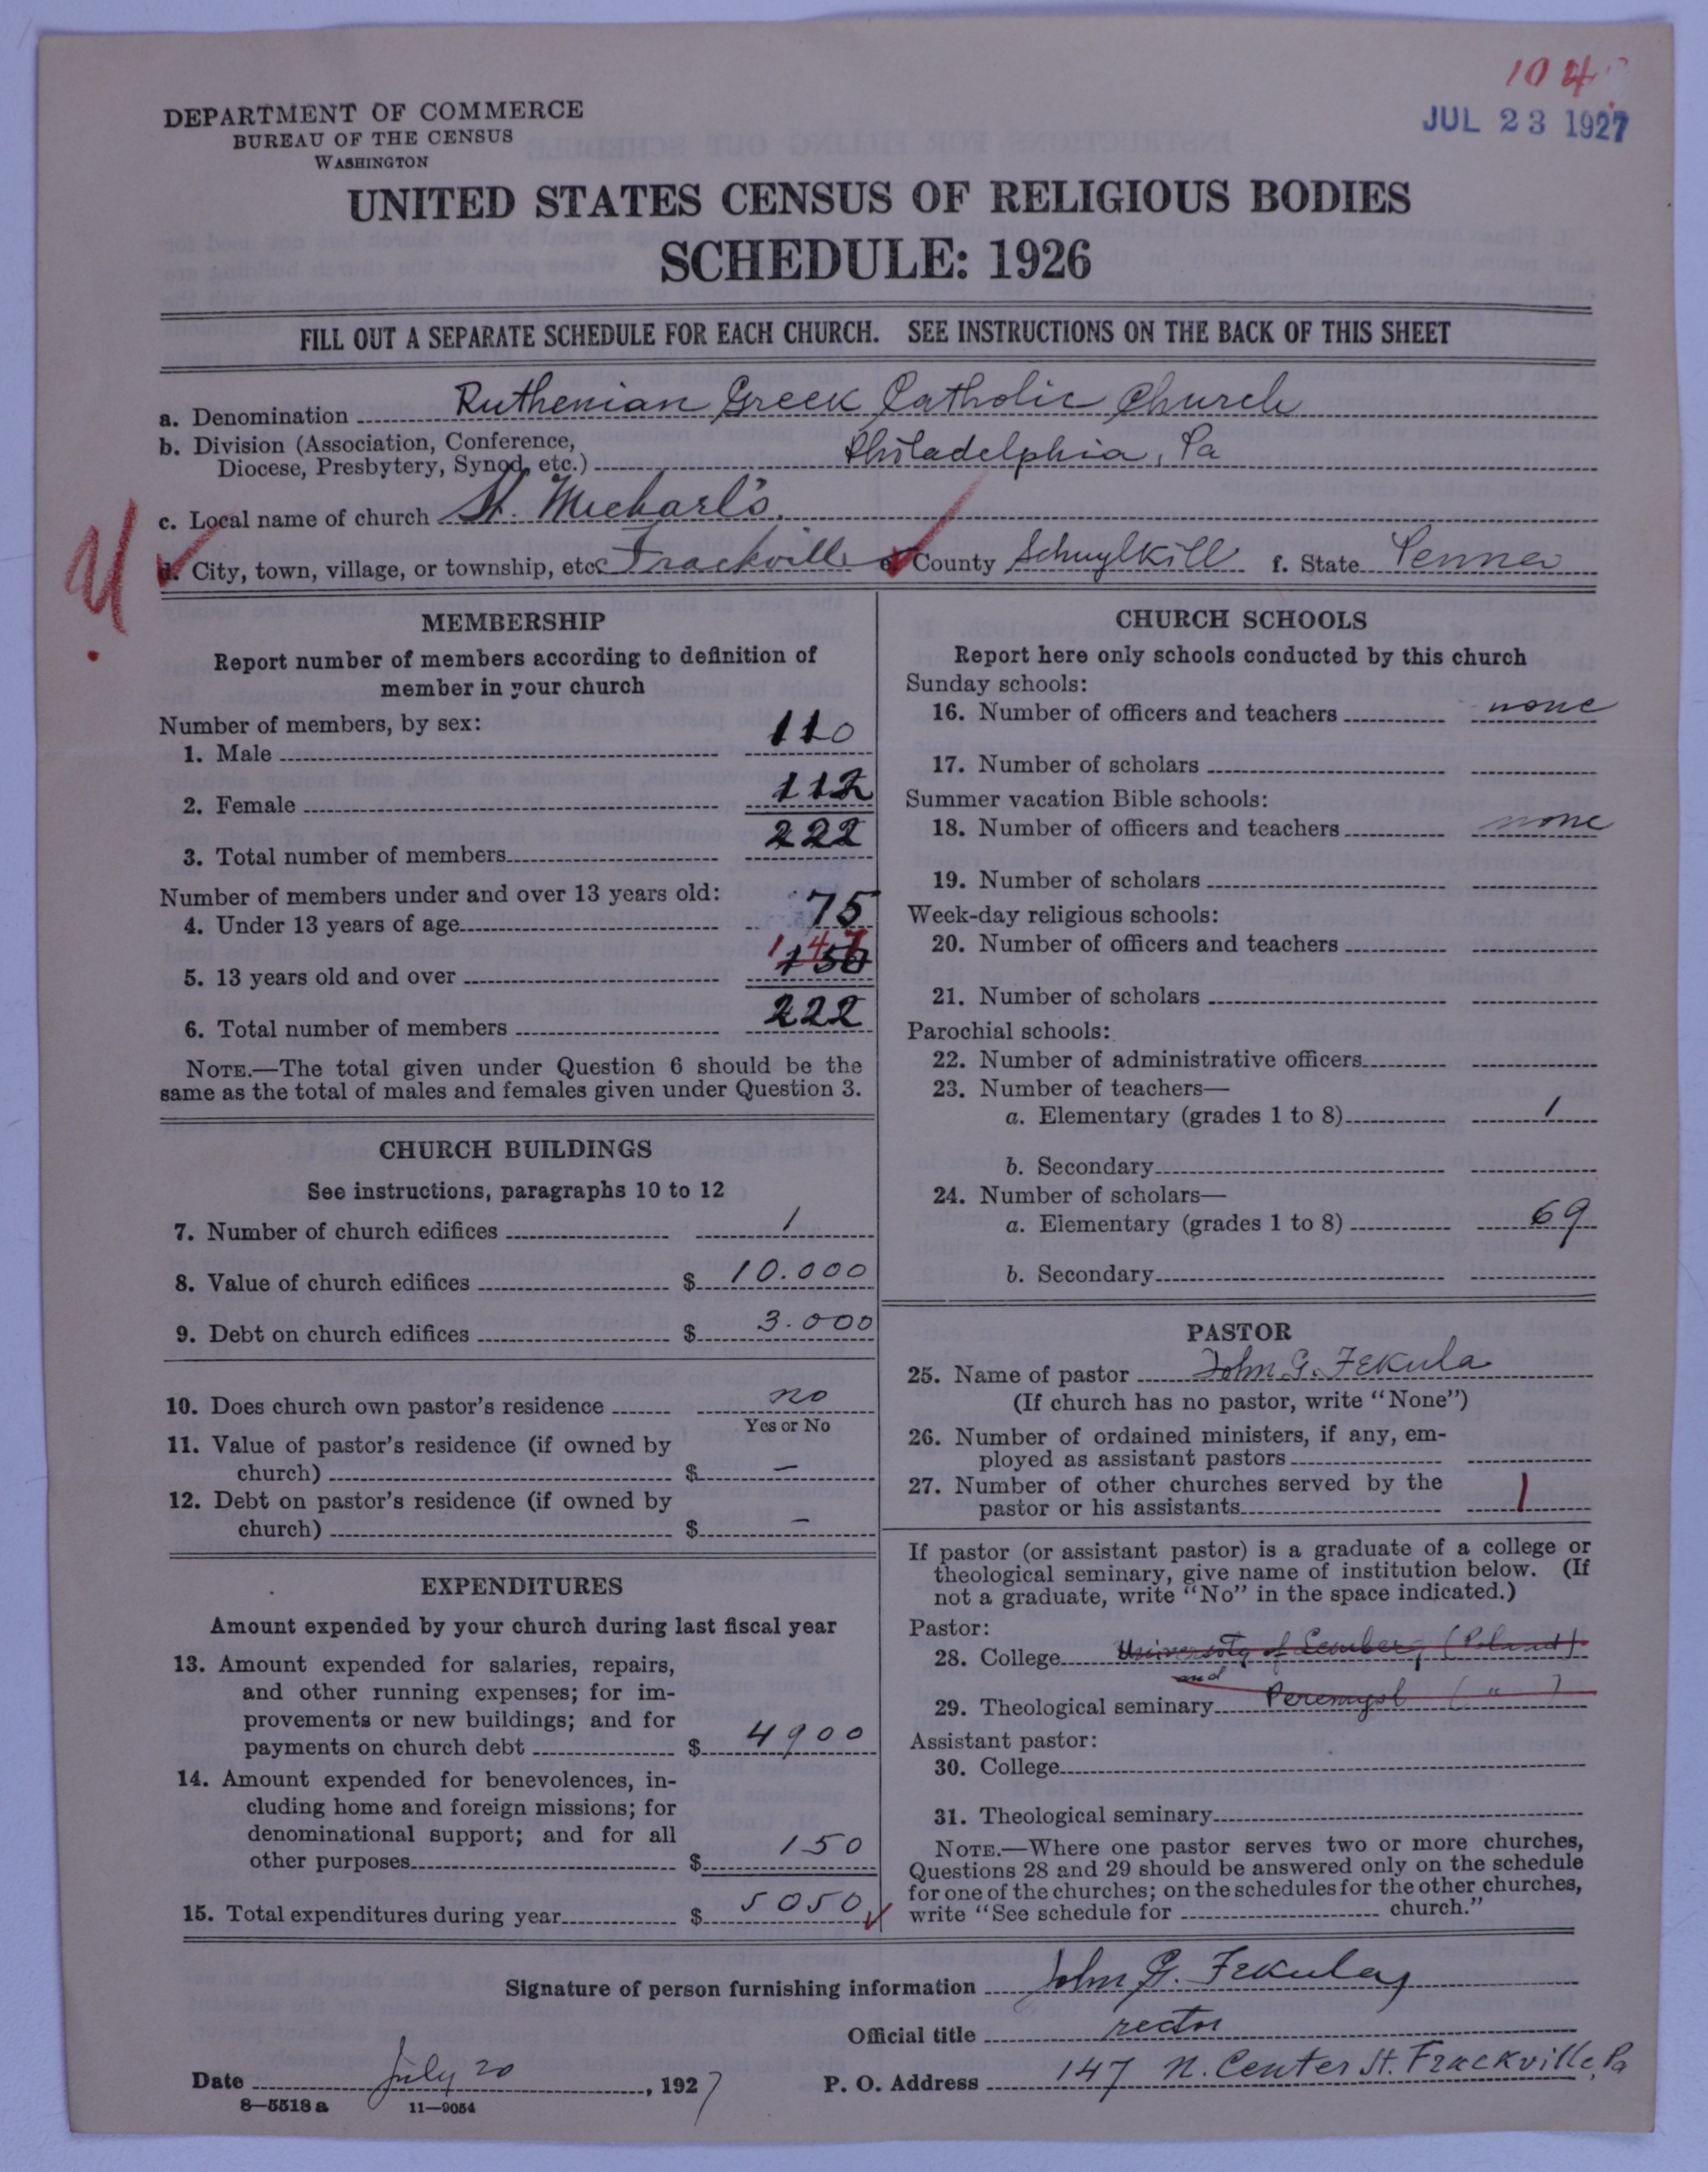 104
JUL 23 1927
DEPARTMENT OF COMMERCE
BUREAU OF THE CENSUS
WASHINGTON
UNITED STATES CENSUS OF RELIGIOUS BODIES
SCHEDULE: 1926
FILL OUT A SEPARATE SCHEDULE FOR EACH CHURCH. SEE INSTRUCTIONS ON THE BACK OF THIS SHEET
a. Denomination Ruthenian Greek Catholic Church
b. Division (Association, Conference,
Diocese, Presbytery, Synod, etc.) Philadelphia, Pa
c. Local name of church St. Michael's.
d. City, town, village, or township, etc. Frackville e. County Schuylkill f. State Penna
MEMBERSHIP
Report number of members according to definition of
member in your church
Number of members, by sex:
1. Male 110
2. Female 112
3. Total number of members 222
Number of members under and over 13 years old:
4. Under 13 years of age 75
147
5. 13 years old and over 150
6. Total number of members 222
NOTE.—The total given under Question 6 should be the
same as the total of males and females given under Question 3.
CHURCH BUILDINGS
See instructions, paragraphs 10 to 12
7. Number of church edifices 1
8. Value of church edifices $ 10.000
9. Debt on church edifices $ 3.000
10. Does church own pastor's residence no
Yes or No
11. Value of pastor's residence (if owned by
church) $ —
12. Debt on pastor's residence (if owned by
church) $ —
EXPENDITURES
Amount expended by your church during last fiscal year
13. Amount expended for salaries, repairs,
and other running expenses; for im-
provements or new buildings; and for
payments on church debt $ 4900
14. Amount expended for benevolences, in-
cluding home and foreign missions; for
denominational support; and for all
other purposes $ 150
15. Total expenditures during year $ 5050
CHURCH SCHOOLS
Report here only schools conducted by this church
Sunday schools:
16. Number of officers and teachers none
17. Number of scholars
Summer vacation Bible schools:
18. Number of officers and teachers none
19. Number of scholars
Week-day religious schools:
20. Number of officers and teachers
21. Number of scholars
Parochial schools:
22. Number of administrative officers
23. Number of teachers—
a. Elementary (grades 1 to 8) 1
b. Secondary
24. Number of scholars—
a. Elementary (grades 1 to 8) 69
b. Secondary
PASTOR
25. Name of pastor John G. Fekula
(If church has no pastor, write "None")
26. Number of ordained ministers, if any, em-
ployed as assistant pastors
27. Number of other churches served by the
pastor or his assistants 1
If pastor (or assistant pastor) is a graduate of a college or
theological seminary, give name of institution below. (If
not a graduate, write "No" in the space indicated.)
Pastor:
28. College University of Lemberg (Poland)
and
29. Theological seminary Peremysl ( " )
Assistant pastor:
30. College
31. Theological seminary
NOTE.—Where one pastor serves two or more churches,
Questions 28 and 29 should be answered only on the schedule
for one of the churches; on the schedules for the other churches,
write "See schedule for church."
Signature of person furnishing information John G. Fekula
Official title rector
Date July 20, 1927 P. O. Address 147 N. Center St. Frackville, Pa
8—5518 a 11—9054